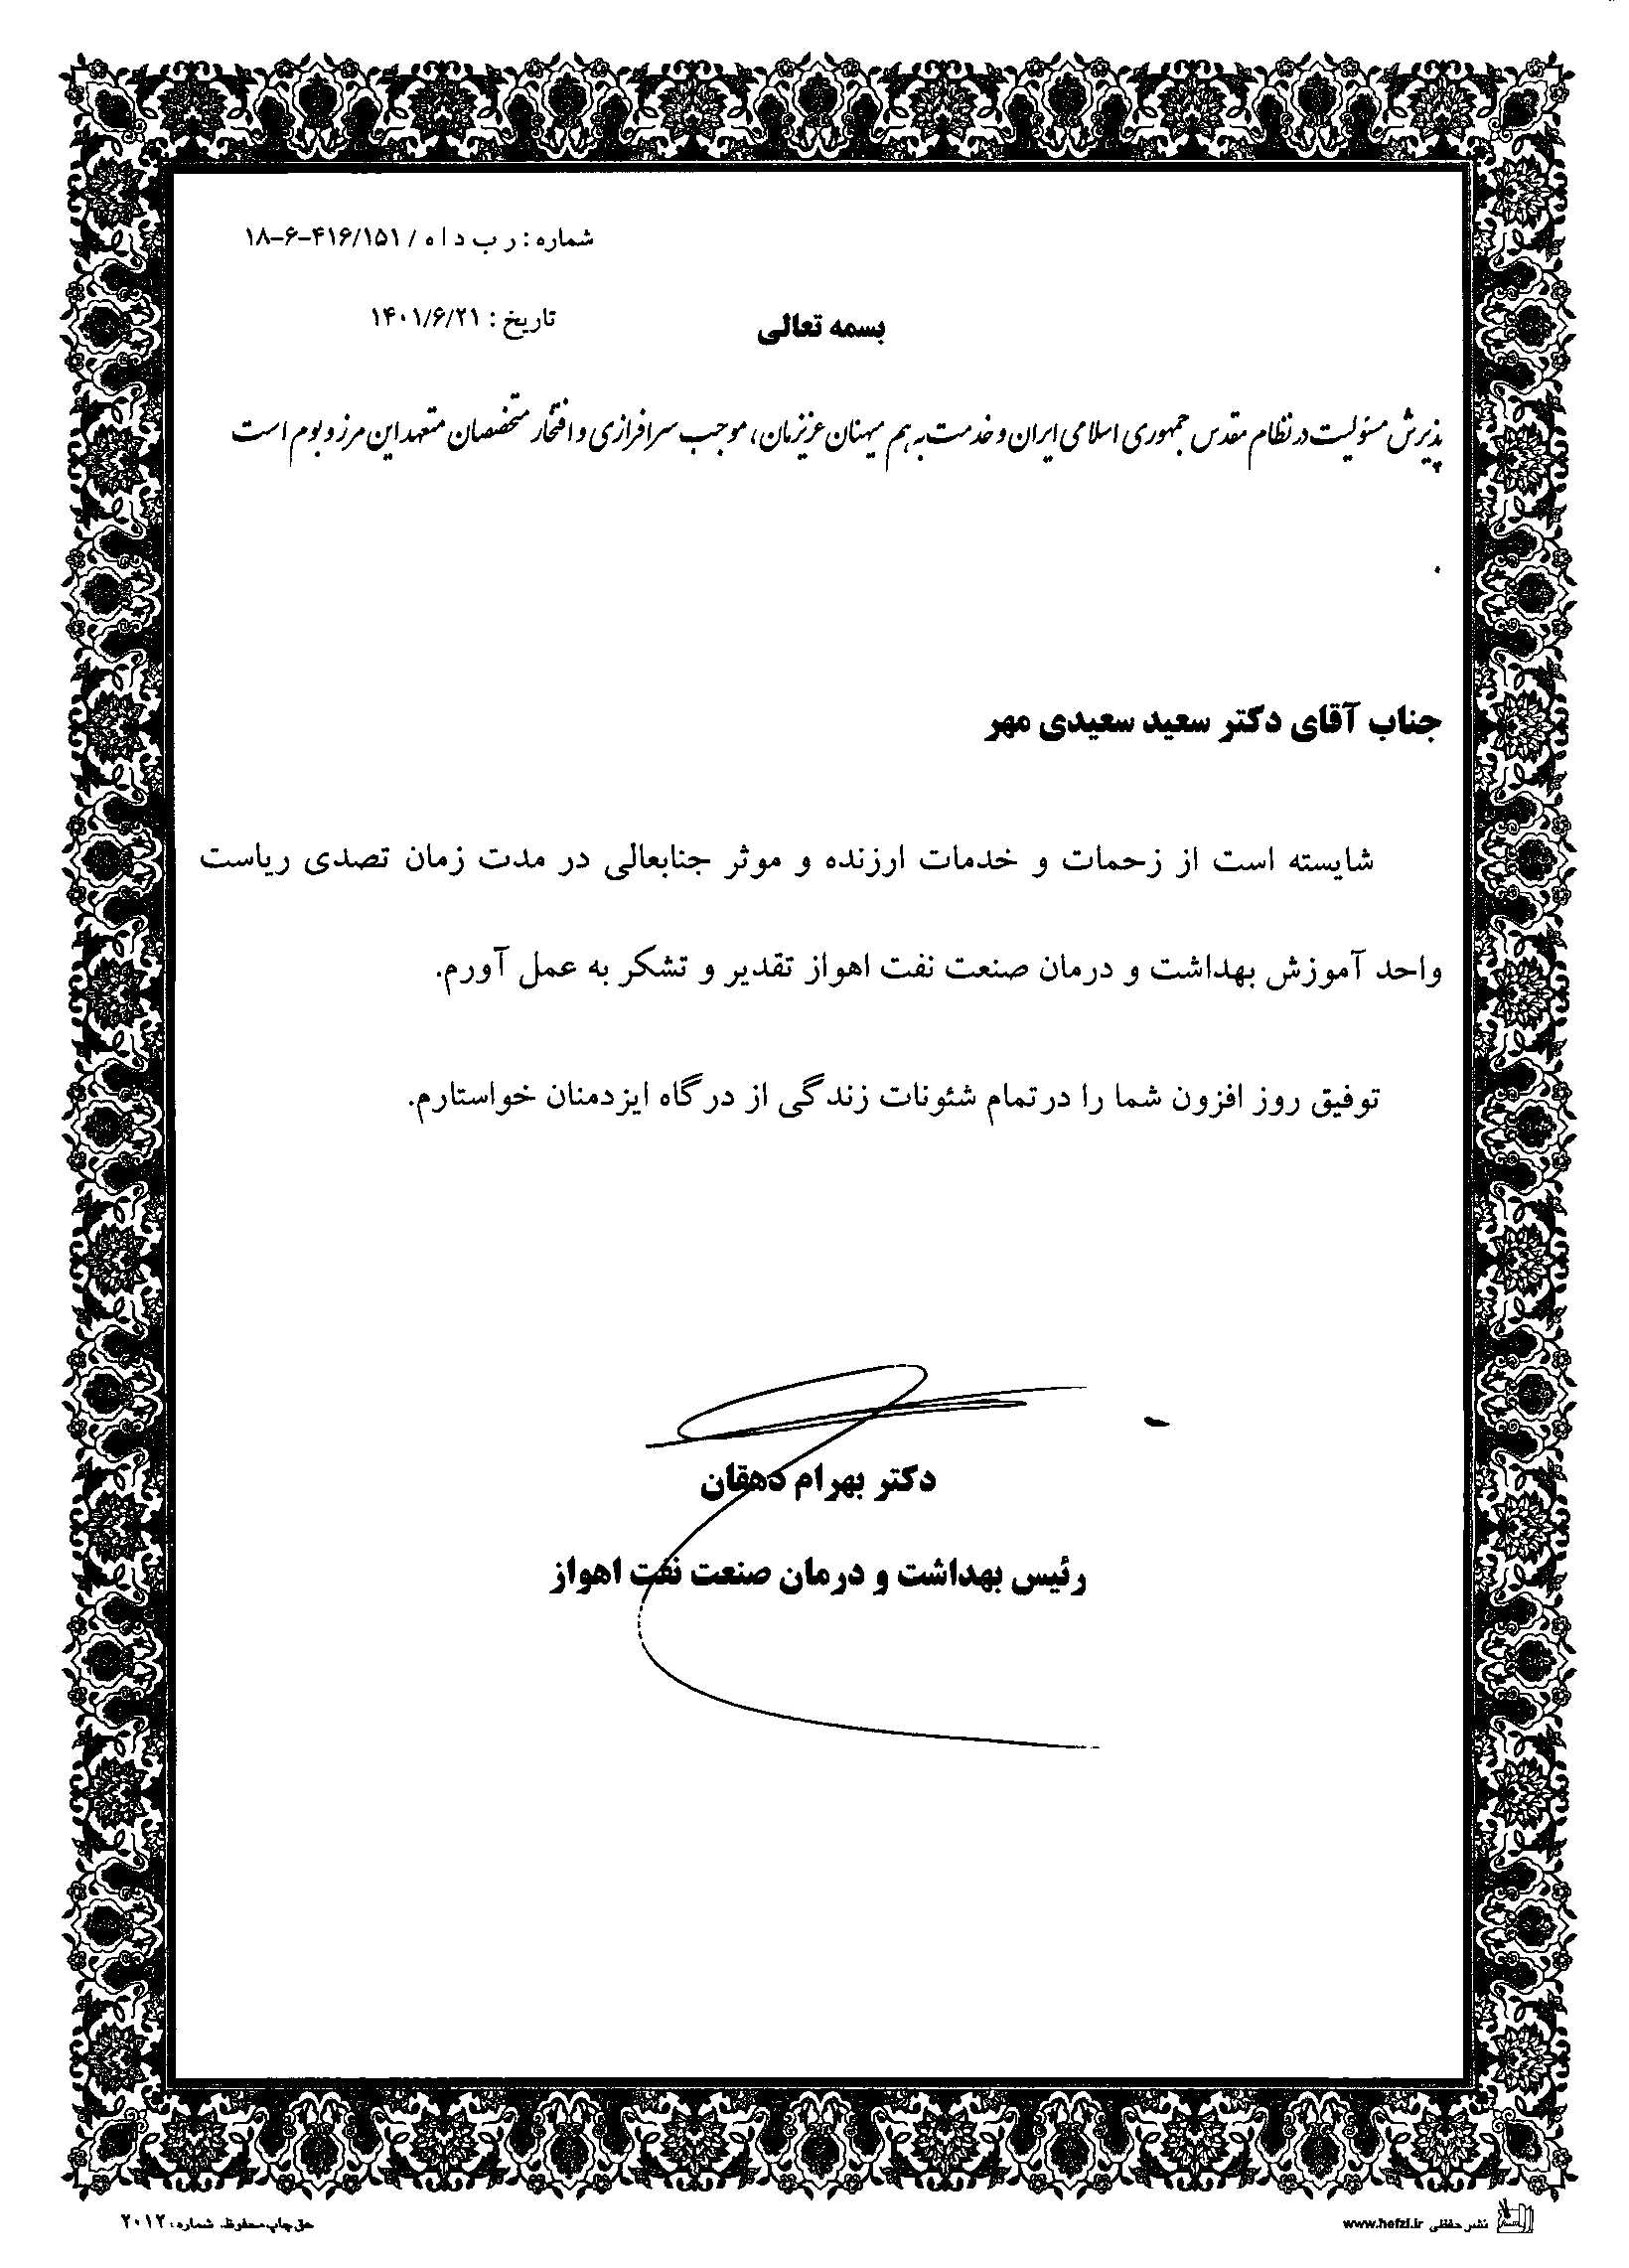 شماره : ر ب د ا ه / ۱۸-۶-۴۱۶/۱۵۱
تاریخ : ۱۴۰۱/۶/۲۱
بسمه تعالی
پذیرش مسئولیت در نظام مقدس جمهوری اسلامی ایران و خدمت به هم میهنان عزیزمان، موجب سرافرازی و افتخار متخصصان متعهد این مرز و بوم است
.
جناب آقای دکتر سعید سعیدی مهر
شایسته است از زحمات و خدمات ارزنده و موثر جنابعالی در مدت زمان تصدی ریاست
واحد آموزش بهداشت و درمان صنعت نفت اهواز تقدیر و تشکر به عمل آورم.
توفیق روز افزون شما را در تمام شئونات زندگی از درگاه ایزدمنان خواستارم.
دکتر بهرام دهقان
رئیس بهداشت و درمان صنعت نفت اهواز
نشر حفظی www.hefzi.ir
حق چاپ محفوظ. شماره: ۲۰۱۲